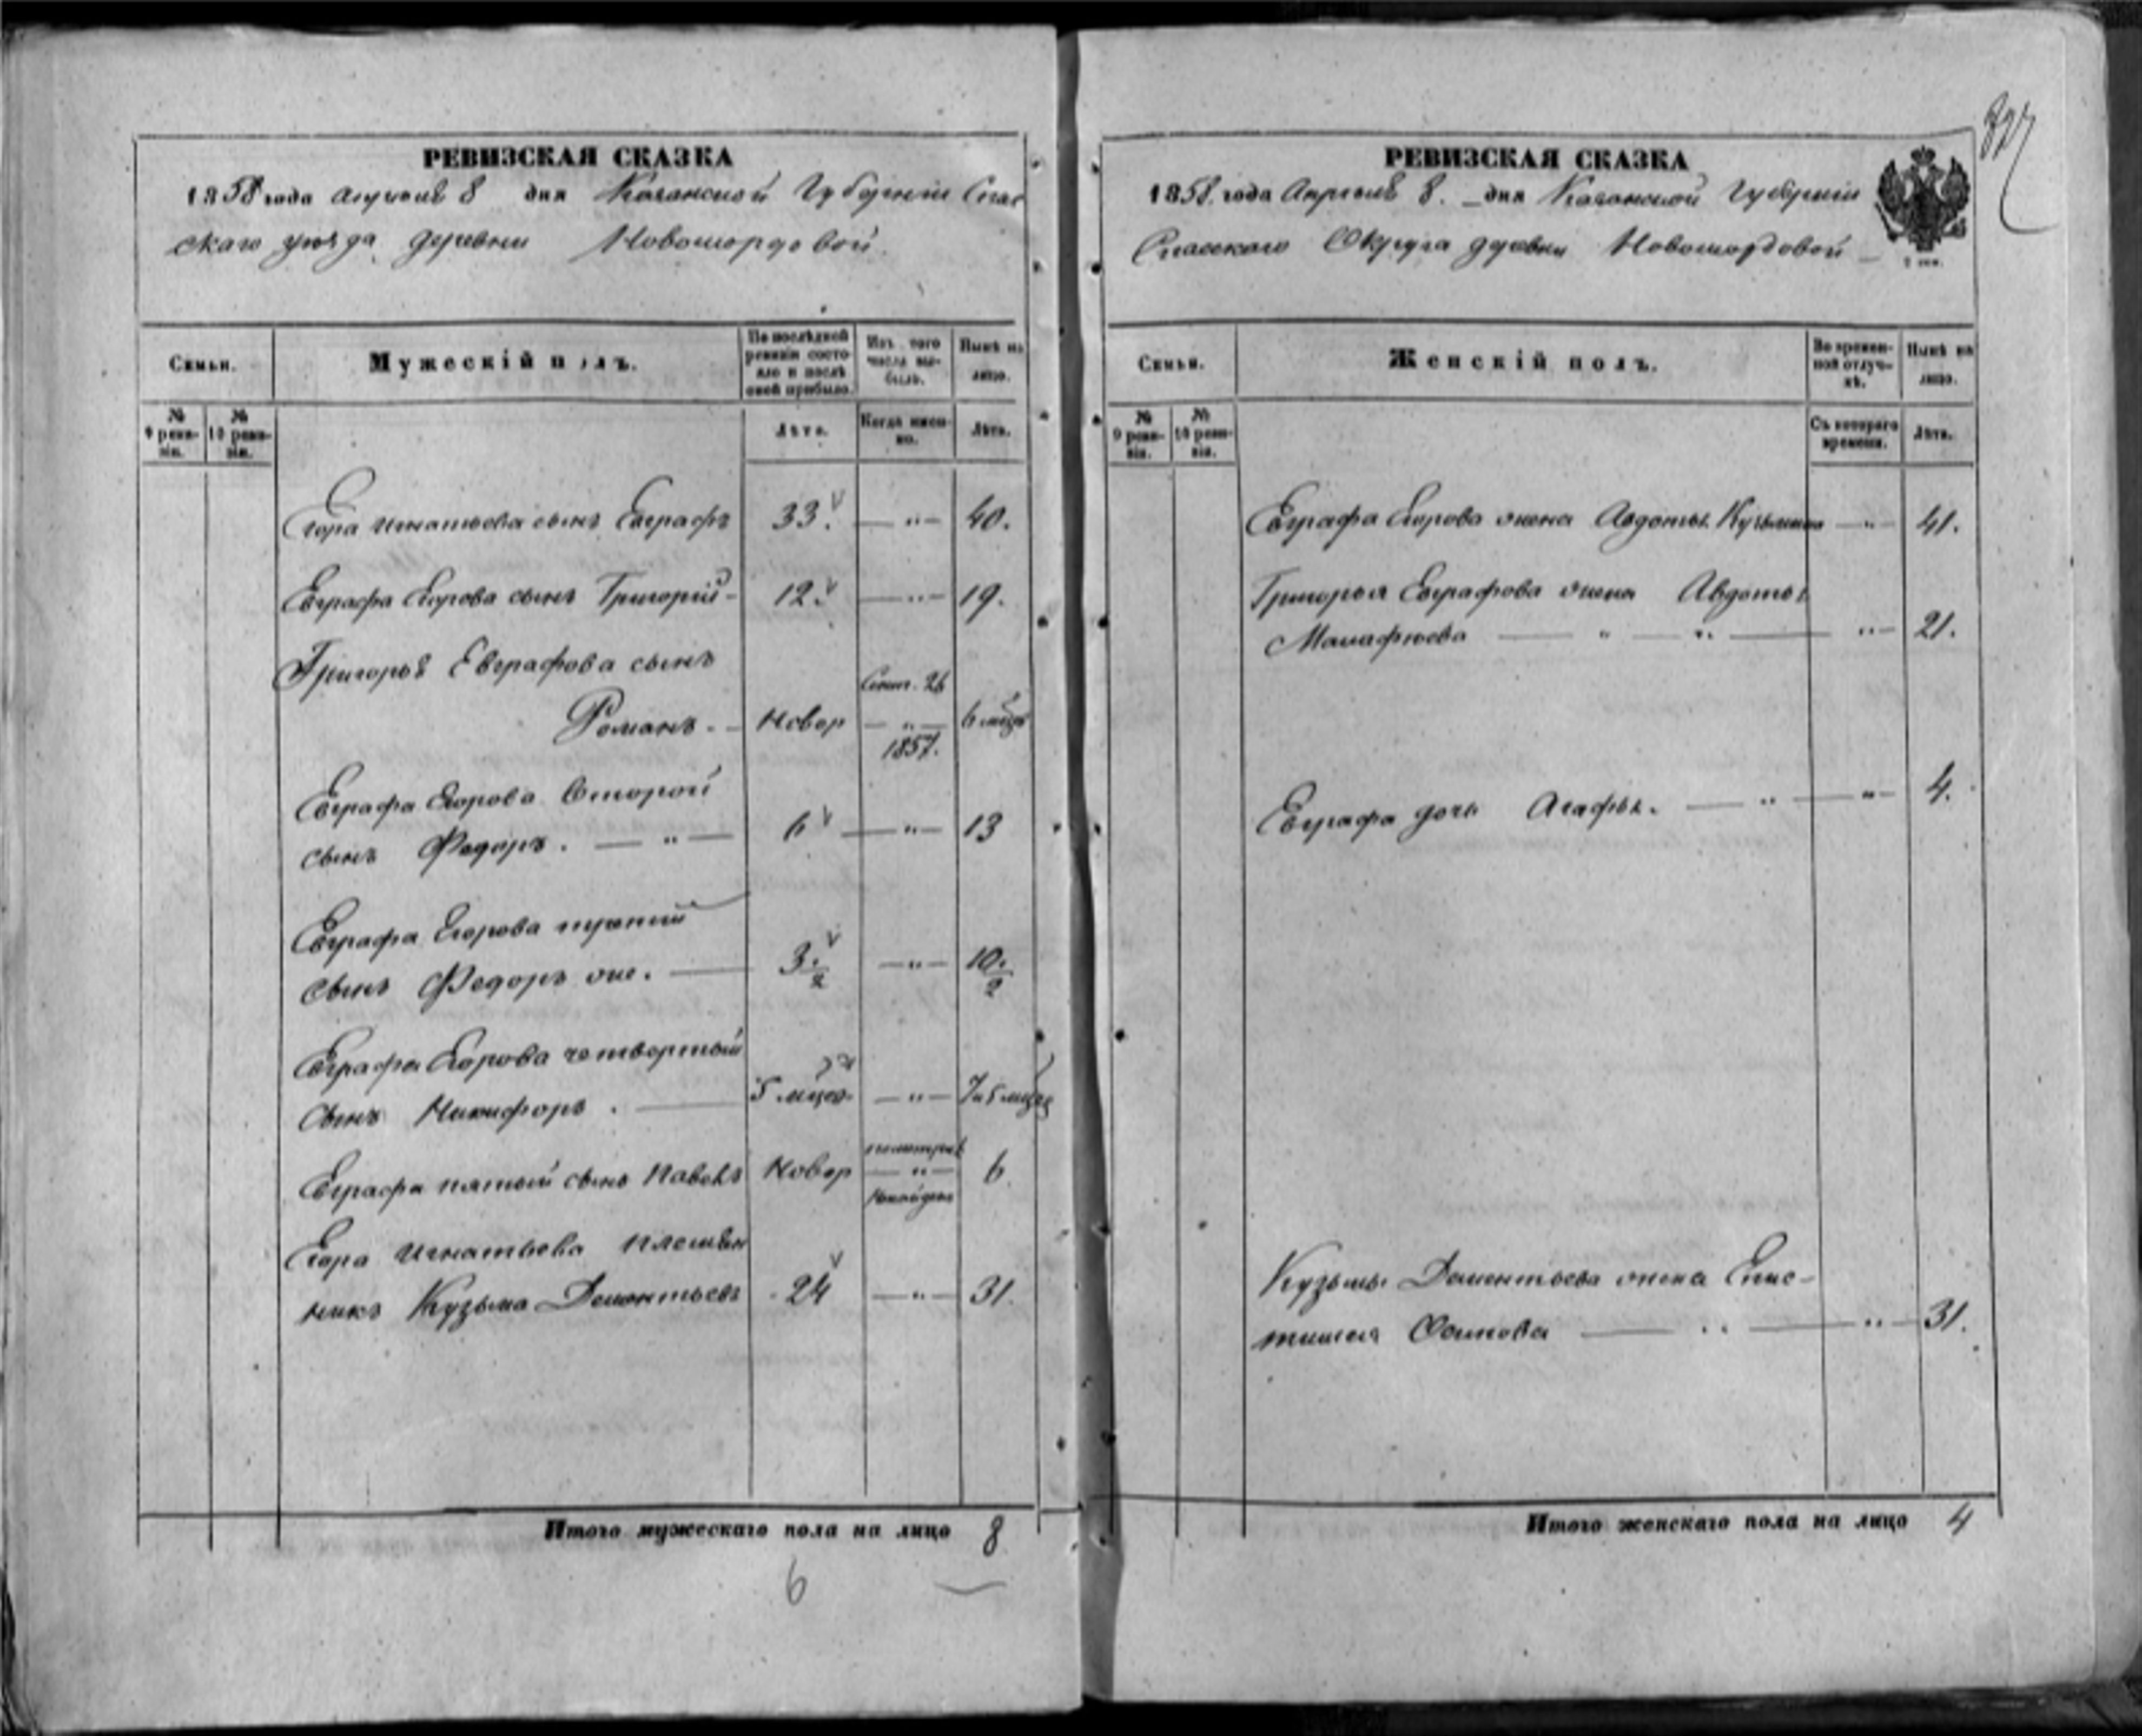 РЕВИЗСКАЯ СКАЗКА
1858 года Апреля 8 дня Казанской Губернии Спас
скаго уѣзда деревни Новомордовой
Семьи.
Мужескій полъ.
По послѣдней ревизіи состояло и послѣ оной прибыло.
Изъ того числа выбыло.
Нынѣ на лицо.
№ 9 ревизіи.
№ 10 ревизіи.
Лѣта.
Когда именно.
Лѣта.
Егора Игнатьева сынъ Евграфъ 33. — " — 40.
Евграфа Егорова сынъ Григорій — 12. — " — 19.
Григорья Евграфова сынъ
Романъ. — Новор Сент. 26 — " — 1857. 6 мцъ
Евграфа Егорова второй
сынъ Федоръ. — " — 6 — " — 13
Евграфа Егорова третий
сынъ Федоръ же. — 3. 2 — " — 10. 2
Евграфа Егорова четвертый
сынъ Никифоръ. — 5 мцов — " — 7 и 5 мцов
Евграфа пятый сынъ Павелъ Новор — " — 6
Егора Игнатьева племян
никъ Кузьма Дементьевъ 24 — " — 31.
Итого мужескаго пола на лицо 8
6
РЕВИЗСКАЯ СКАЗКА
1858. года Апреля 8. дня Казанской Губернии
Спасскаго Округа деревни Новомордовой —
Семьи.
Женскій полъ.
Во временной отлучкѣ.
Нынѣ на лицо.
№ 9 ревизіи.
№ 10 ревизіи.
Съ котораго времени.
Лѣта.
Евграфа Егорова жена Авдотья Кузьмина — " — 41.
Григорья Евграфова жена Авдотья
— " — " — " — 21.
Евграфа дочь Агафья. — " — " — 4.
Кузьмы Дементьева жена Епис-
тимея Осипова — " — " — 31.
Итого женскаго пола на лицо 4